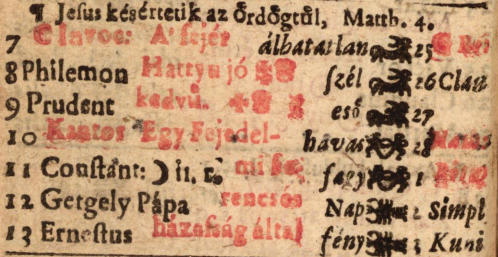 ¶ Jesus késértetik az ördögtűl, Matth. 4.
7 A' fejér álhatatlan 25
8 Philemon Hattyu jó szél 26 Clau
9 Prudent kedvű. eső 27
10 Kantor Egy Fejedel- havas 28
11 Constant: ☽ 11. r. mi fagy 1
12 Getgely Pápa rencsés Nap 2 Simpl
13 Ernestus házasság által fény 3 Kuni